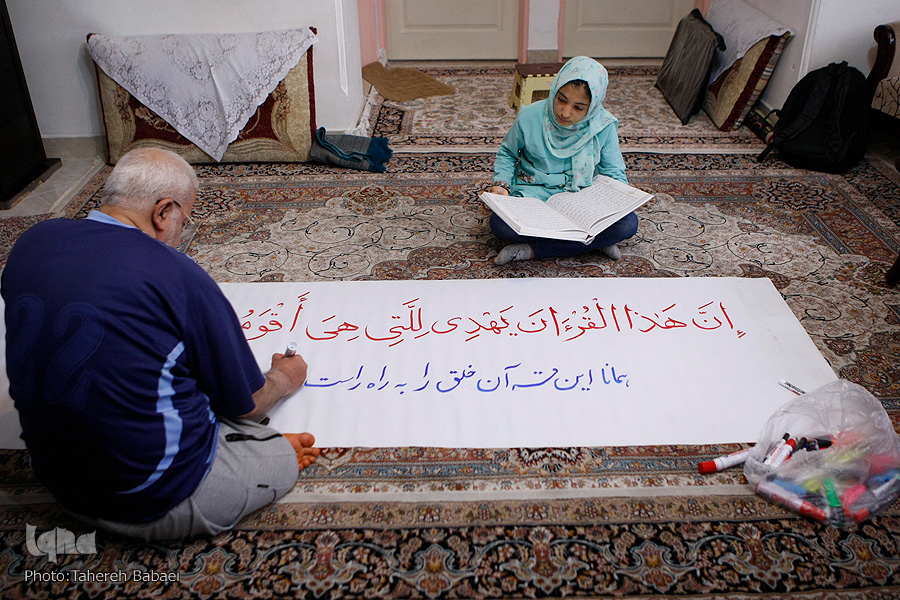 إِنَّ هَٰذَا الْقُرْءَانَ يَهْدِى لِلَّتِى هِىَ أَقْوَمُ
همانا این قرآن خلق را به راه راست
22
Iqna
Photo:Tahereh Babaei